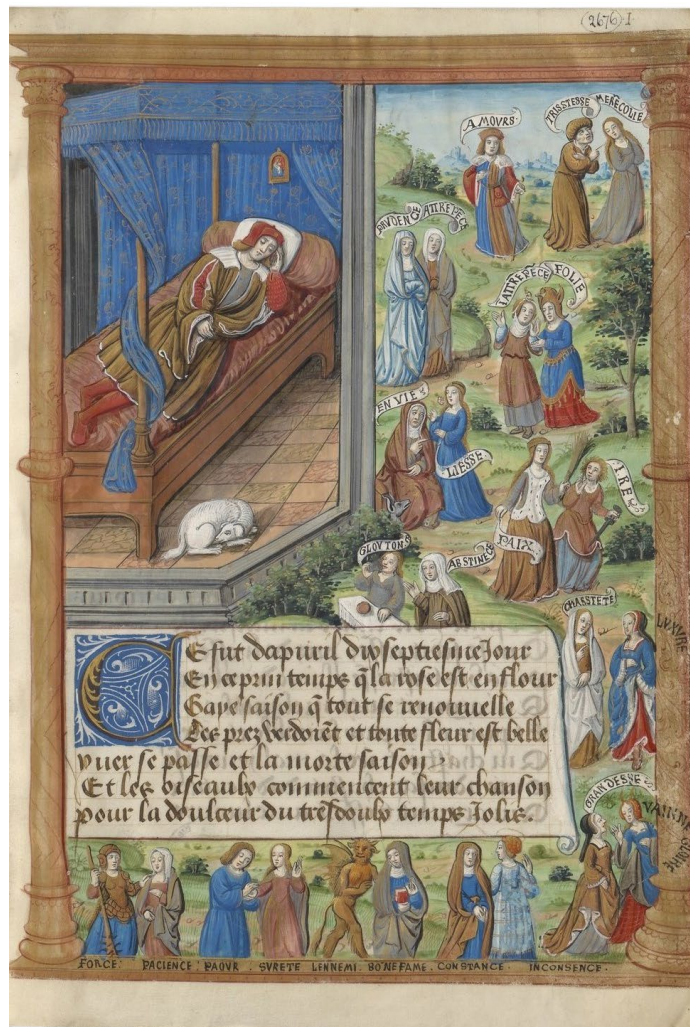 2676 I
AMOURS
TRISTESSE MERECOLIE
PRUDENCE ATTREPECE
LATTREPECE FOLIE
ENVIE
LIESSE
IRE
PAIX
GLOUTON
ABSTINECE
CHASSTETE
LUXURE
E fut dapuril dixseptiesme Jour
En ce prin temps q̄ la rose est en flour
Gaye saison q̄ tout se renouuelle
Les prez verdoiēt et toute fleur est belle
yuer se passe et la morte saison
Et les oiseaulx commencent leur chanson
pour la doulceur du tresdoulx temps Jolis.
GRANDESSE
VAINE GLOIRE
FORCE: PACIENCE: PAOUR. SURETE LENNEMI: BONEFAME. CONSTANCE. INCONSENCE.